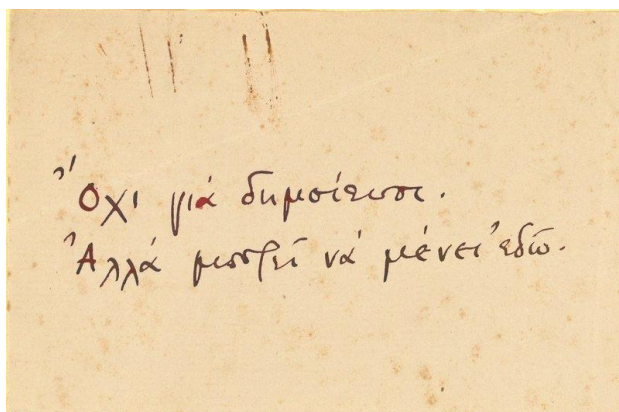 Ὄχι γιά δημοσίευσι.
Ἀλλά μπορεῖ νά μένει ἐδῶ.